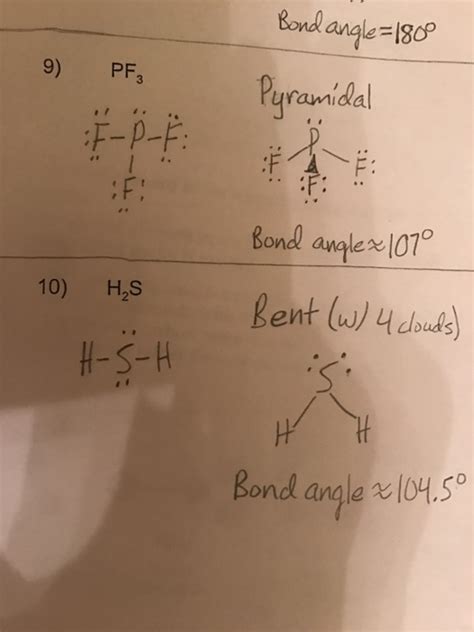 Bond angle=180°
9) PF₃
Pyramidal
:F-P-F:
:F:
P
:F F:
:F:
Bond angle≈107°
10) H₂S
Bent (w/ 4 clouds)
H-S-H
:S:
H H
Bond angle≈104.5°